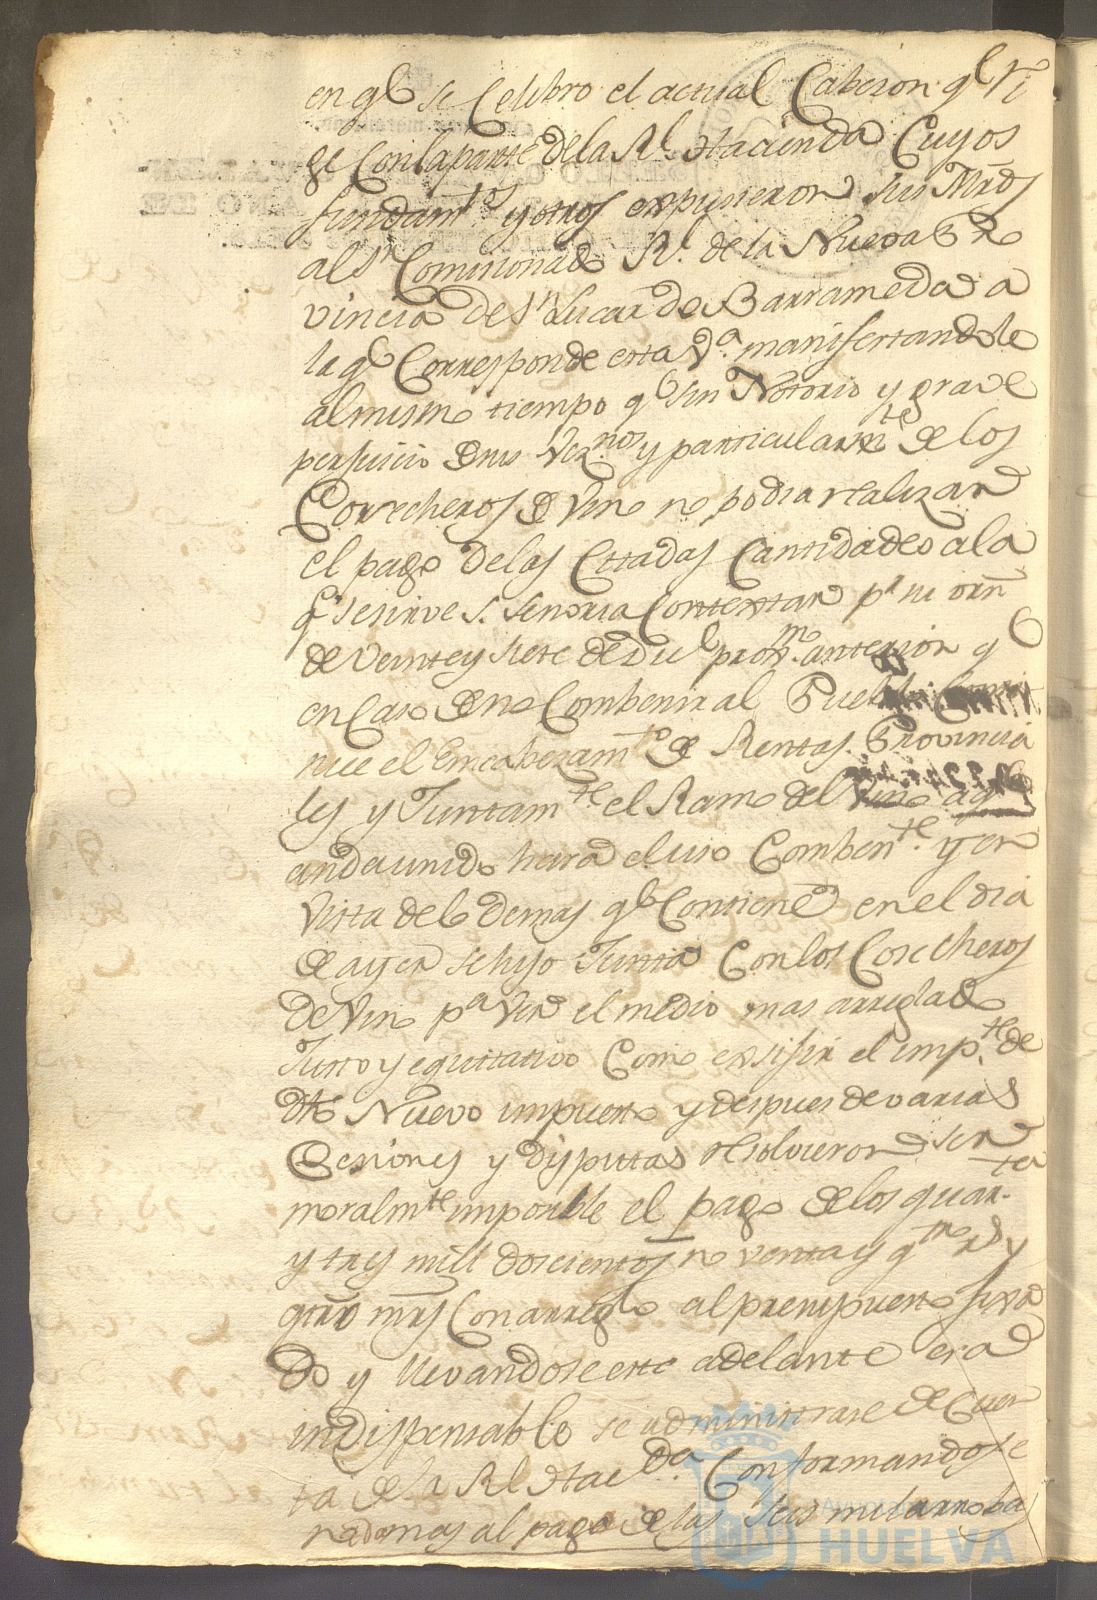 en qe se Celebro el actual Cabeson qe Ri
ge Con la parte de la Rl. Hacienda Cuyos
fundamtos. y otros expusieron sus Mrds
al Sr. Comisionado Rl. de la Nueva Pro
vincia de Sn Lucar de Barrameda a
la qe Corresponde esta Va. manifestandole
al mismo tiempo qe sin Notorio y grave
perjuicio de sus Vecinos y particularmte de los
Cosecheros de Vino no podia realizar
el pago de las Citadas Cantidades a la
qe se sirve S. Senoria Contextar pr su orn
de Veinte y siete de Dice proxmo. anterior qe
en Caso de no Combenir al Pueblo
nue el Encabezamto de Rentas Provincia
les y Juntamte el Ramo del Vino a qe
anda unido hara el uso Combente. y en
Vista de lo demas qe Contiene en el dia
de ayer se hiso Junta Con los Cosecheros
de Vino pa Ver el medio mas arreglado
Justo y equitativo Como exsijir el impte. de
dho Nuevo impuesto y despues de varias
Cesiones y disputas resolvieron ser
moralmte imposible el pago de los quarta
y tres mill doscientos noventa y qtro rs y
qtro mrs Con arreglo al presupuesto fixa
do y llevandose este adelante era
indispensable se administrase de Cuen
ta de la Rl Hacda Conformandose
nadamas al pago de las seis mil arroba
HUELVA